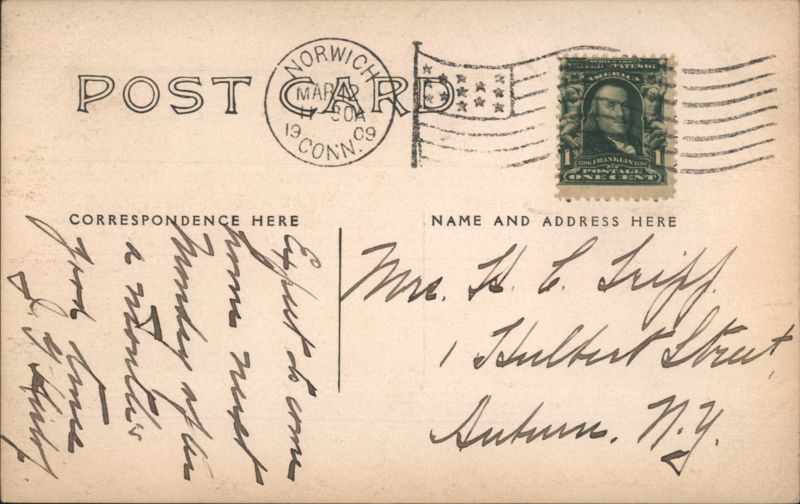 POST CARD
NORWICH
MAR 12
11 30A
1909
CONN.
SERIES 1902
UNITED STATES OF
AMERICA
1 1
1706 FRANKLIN 1790
POSTAGE
ONE CENT
CORRESPONDENCE HERE
Expect to come
home next
Monday after
a month's
good time
NAME AND ADDRESS HERE
Mrs. H. C. Tripp.
1 Hulbert Street,
Auburn, N.Y.